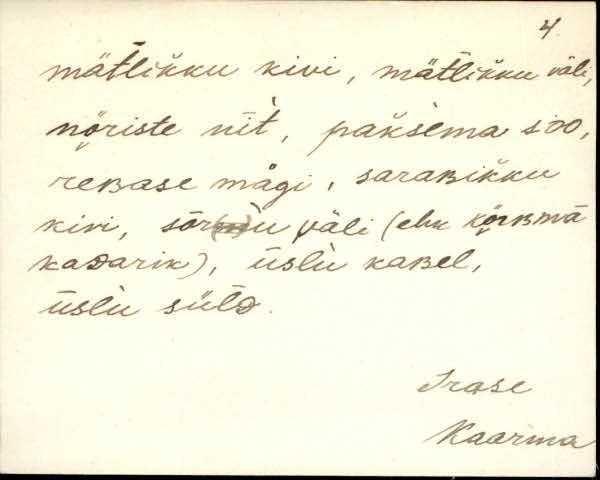 4
mätlikku kivi, mätlikku väli,
nöriste nìt, paksema soo,
reʙase mägi, saraʙikku
kivi, väli (ehk körʙmä
kaᴅarik), üslù kaʙel,
üslù sülᴅ.
Irase
Kaarma